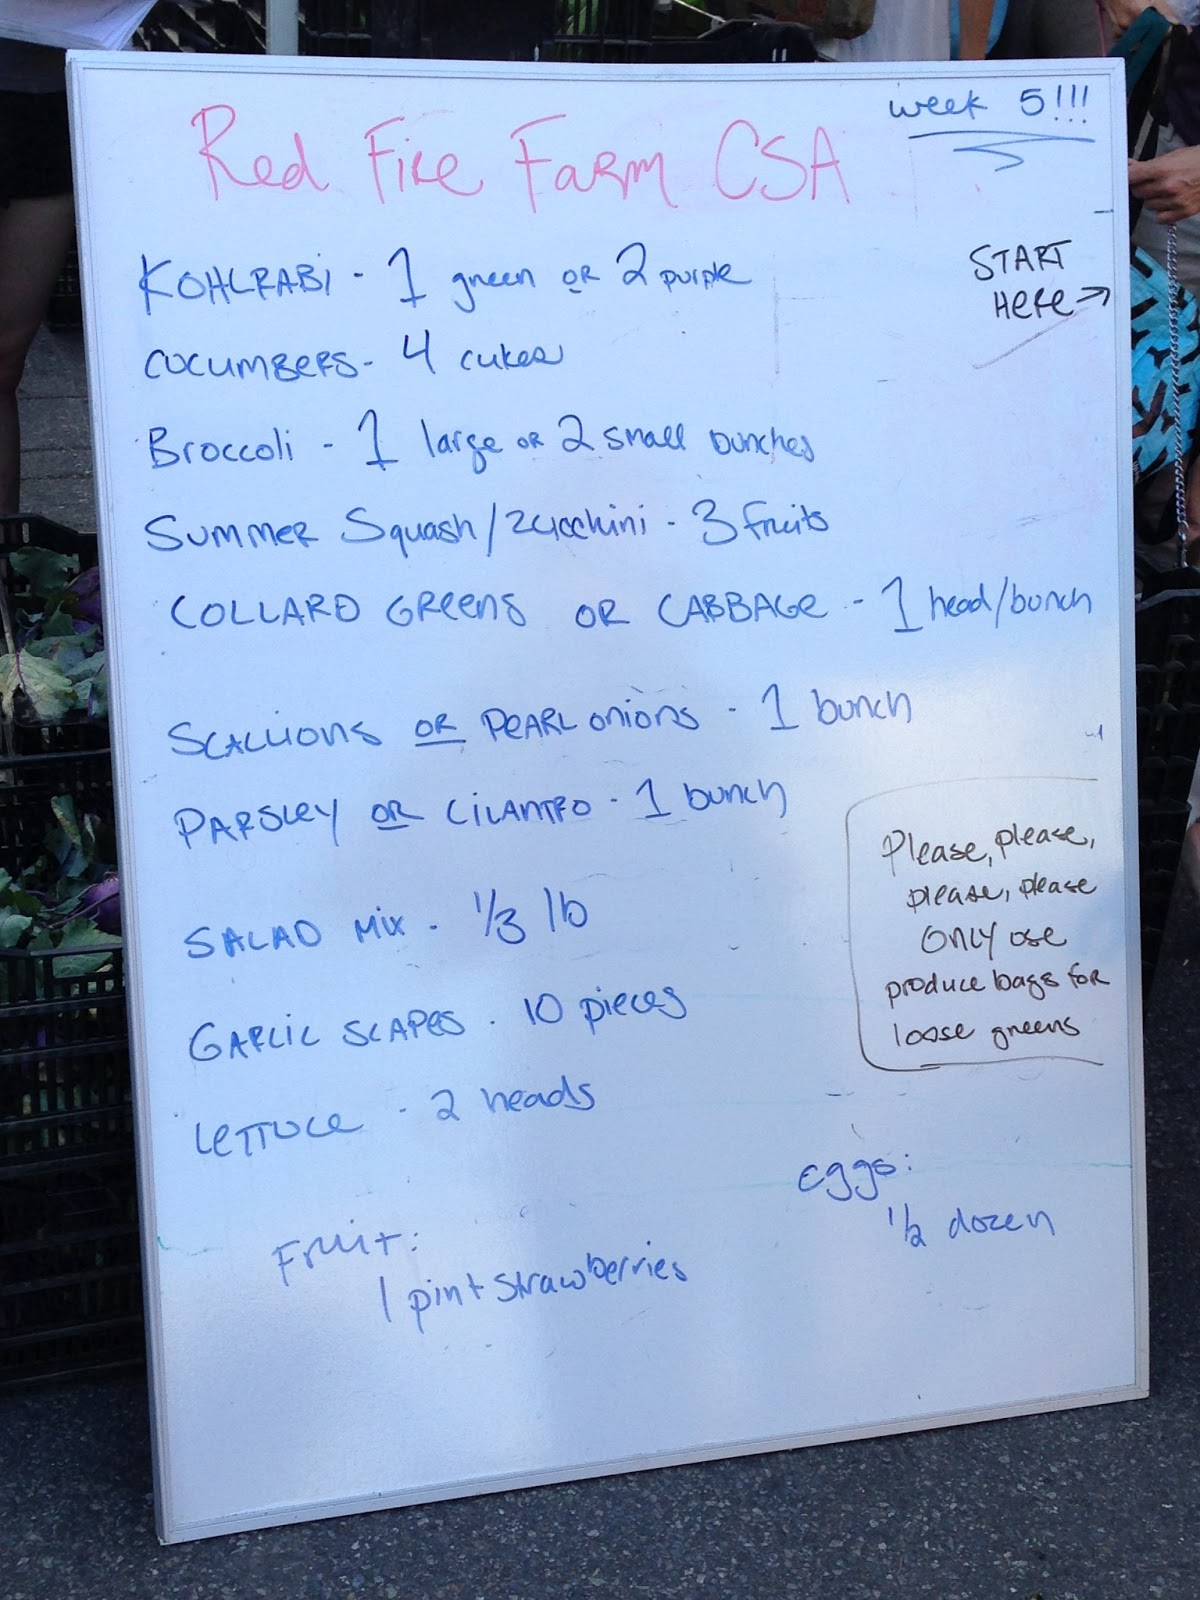 week 5!!!
Red Fire Farm CSA
START
HERE →
KOHLRABI - 1 green OR 2 purple
CUCUMBERS - 4 cukes
Broccoli - 1 large OR 2 small bunches
SUMMER Squash/zucchini - 3 fruits
COLLARD GREENS OR CABBAGE - 1 head/bunch
SCALLIONS OR PEARL ONIONS - 1 bunch
PARSLEY OR CILANTRO - 1 bunch
Please, please,
please, please
ONLY use
produce bags for
loose greens
SALAD MIX - 1/3 lb
GARLIC SCAPES - 10 pieces
LETTUCE - 2 heads
eggs:
1/2 dozen
Fruit:
1 pint strawberries